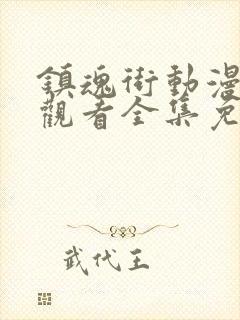 鎮魂街動漫
觀看全集免
武代王